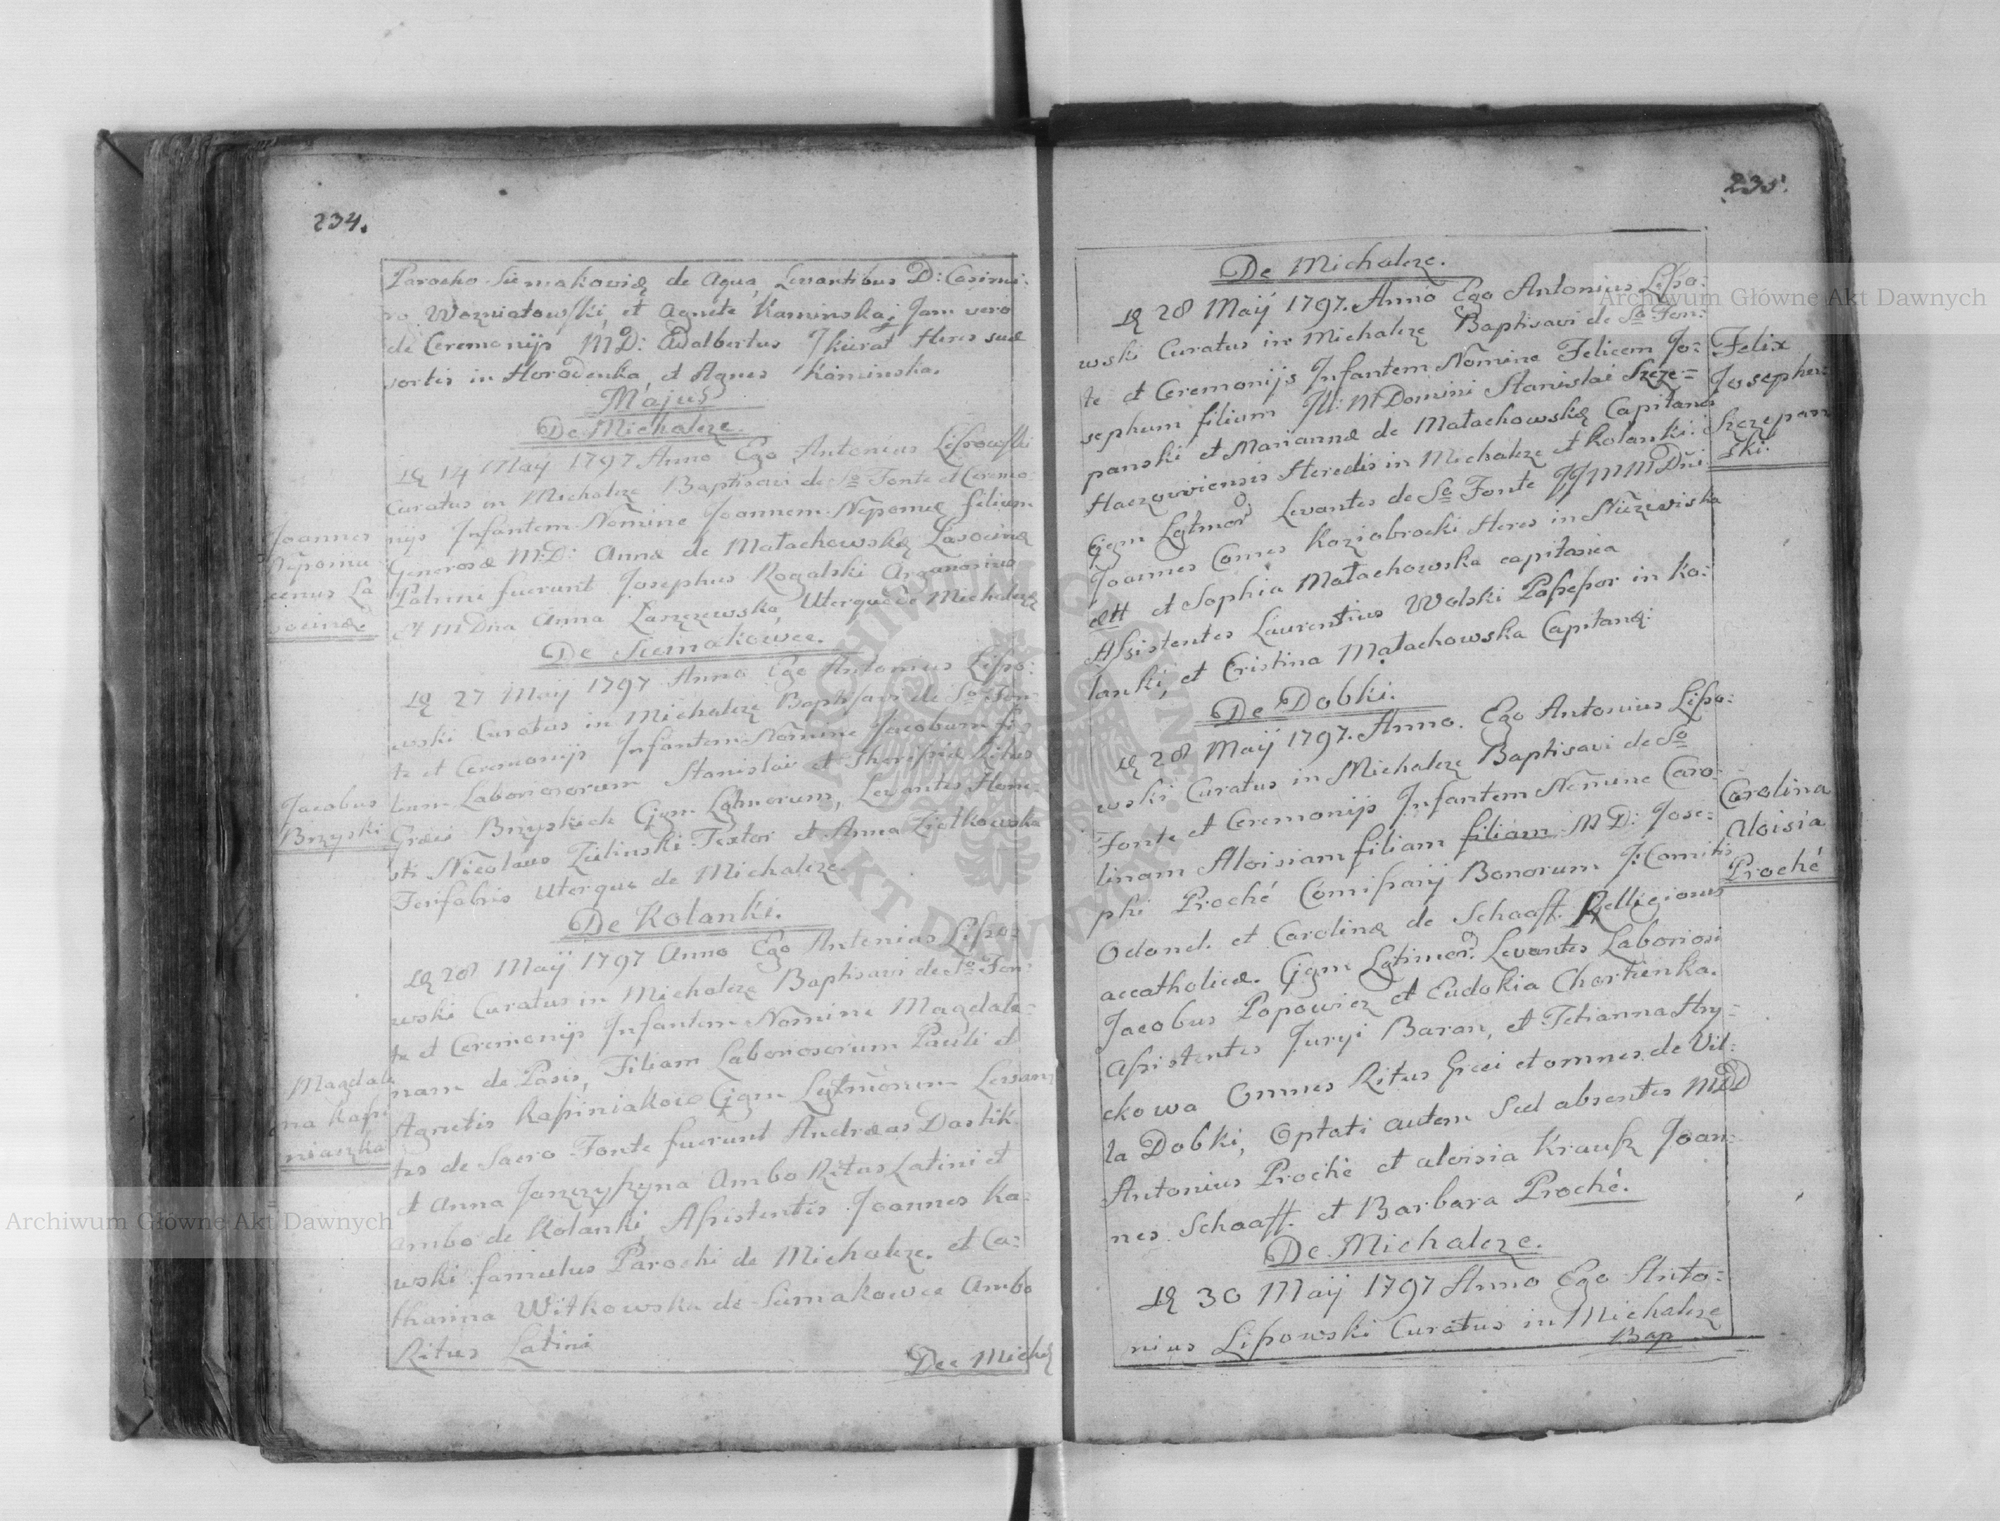 234.
Parocho Siemakoviæ de Aqua, Levantibus D: Casimi:
ro Wozniatowski, et Agnete Kaminska; Jam vero
de Ceremonijs MD: Adalbertus Heres suæ
sortis in Horodenka, et Agnes Kaminska.
Majus
De Michalcze.
14 Maij 1797 Anno Ego Antonius Lipowski
Curatus in Michalcze Baptisavi de So Fonte et Cæremo
nijs Infantem Nomine Joannem Nepomuc filium
Generosæ MD: Annæ de Małachowskie Lasocinæ
Patrini fuerunt Josephus Rogalski
et MDna Anna Utérque de Michalcze
Joannes
Nepomu
cenus La
socinæ
De Siemakowce.
27 Maij 1797 Anno Ego Antonius Lipo:
wski Curatus in Michalcze Baptisavi de So Fon:
te et Ceremonijs Infantem Nomine Jacobum fi:
lium Laboriosorum Stanislai et Ritus
Græci Brzyskich Cjgm Lgtmorum, Levantes Hone:
sti Nicolaus Zielinski Textor et Anna Ziółkowska
Ferifabris Uterque de Michalcze.
Jacobus
Brzyski
De Kolanki.
28 Maij 1797 Anno Ego Antonius Lipo:
wski Curatus in Michalcze Baptisavi de So Fon:
te et Ceremonijs Infantem Nomine Magdale:
nam de Pasis, Filiam Laboriosorum Pauli et
Agnetis Kapiniakow Cjgm Lgtmorum Levan
tes de Sacro Fonte fuerunt Andræas Dostik
et Anna Ambo Ritus Latini et
Ambo de Kolanki, Assistentes Joannes Ka:
wski famulus Parochi de Michalcze. et Ca:
tharina Witkowska de Siemakowce Ambo
Ritus Latini
Magdale
na Kapi
nianka
Dee Michcz
235.
De Michalcze.
28 Maij 1797. Anno Ego Antonius Lipo:
wski Curatus in Michalcze Baptisavi de So Fon:
te et Ceremonijs Infantem Nomine Felicem Jo:
sephum filium Ill: M Domini Stanislai Szcze=
panski et Mariannæ de Małachowskie Capitanei
Haeredis in Michalcze et Kolanki.
Cjgm Lgtmor Levantes de So Fonte JJ MM Dni
Joannes Comes Koziobrocki Heres in
et Sophia Małachowska capitanea
Assistentes Laurentius Wolski Possessor in Ko:
lanki, et Cristina Małachowska Capitanei
Felix
Josephus
Szczepan
ski.
De Dobki.
28 Maij 1797. Anno. Ego Antonius Lipo:
wski Curatus in Michalcze Baptisavi de So
Fonte et Ceremonijs Infantem Nomine Caro:
linam Aloisiam filiam filiam MD: Jose:
phi Proché Comissarij Bonorum J: Comitis
Odonel. et Carolinæ de Schaaff. Relligionis
accatholicæ. Cjgm Lgtimor. Levantes Laboriosi
Jacobus Popowicz et Eudokia Chortienka.
Assistentes Juryi Baran, et Tetianna Hry=
ckowa Omnes Ritus Græci et omnes de Vil:
la Dobki, Optati autem Sed absentes MDD
Antonius Proché et Aloisia Krausz Joan:
nes Schaaff. et Barbara Proché.
Carolina
Aloisia
Proché
De Michalcze.
30 Maij 1797 Anno Ego Anto:
nius Lipowski Curatus in Michalcze
Bap
Archiwum Główne Akt Dawnych
Archiwum Główne Akt Dawnych
ARCHIWUM GŁÓWNE AKT DAWNYCH